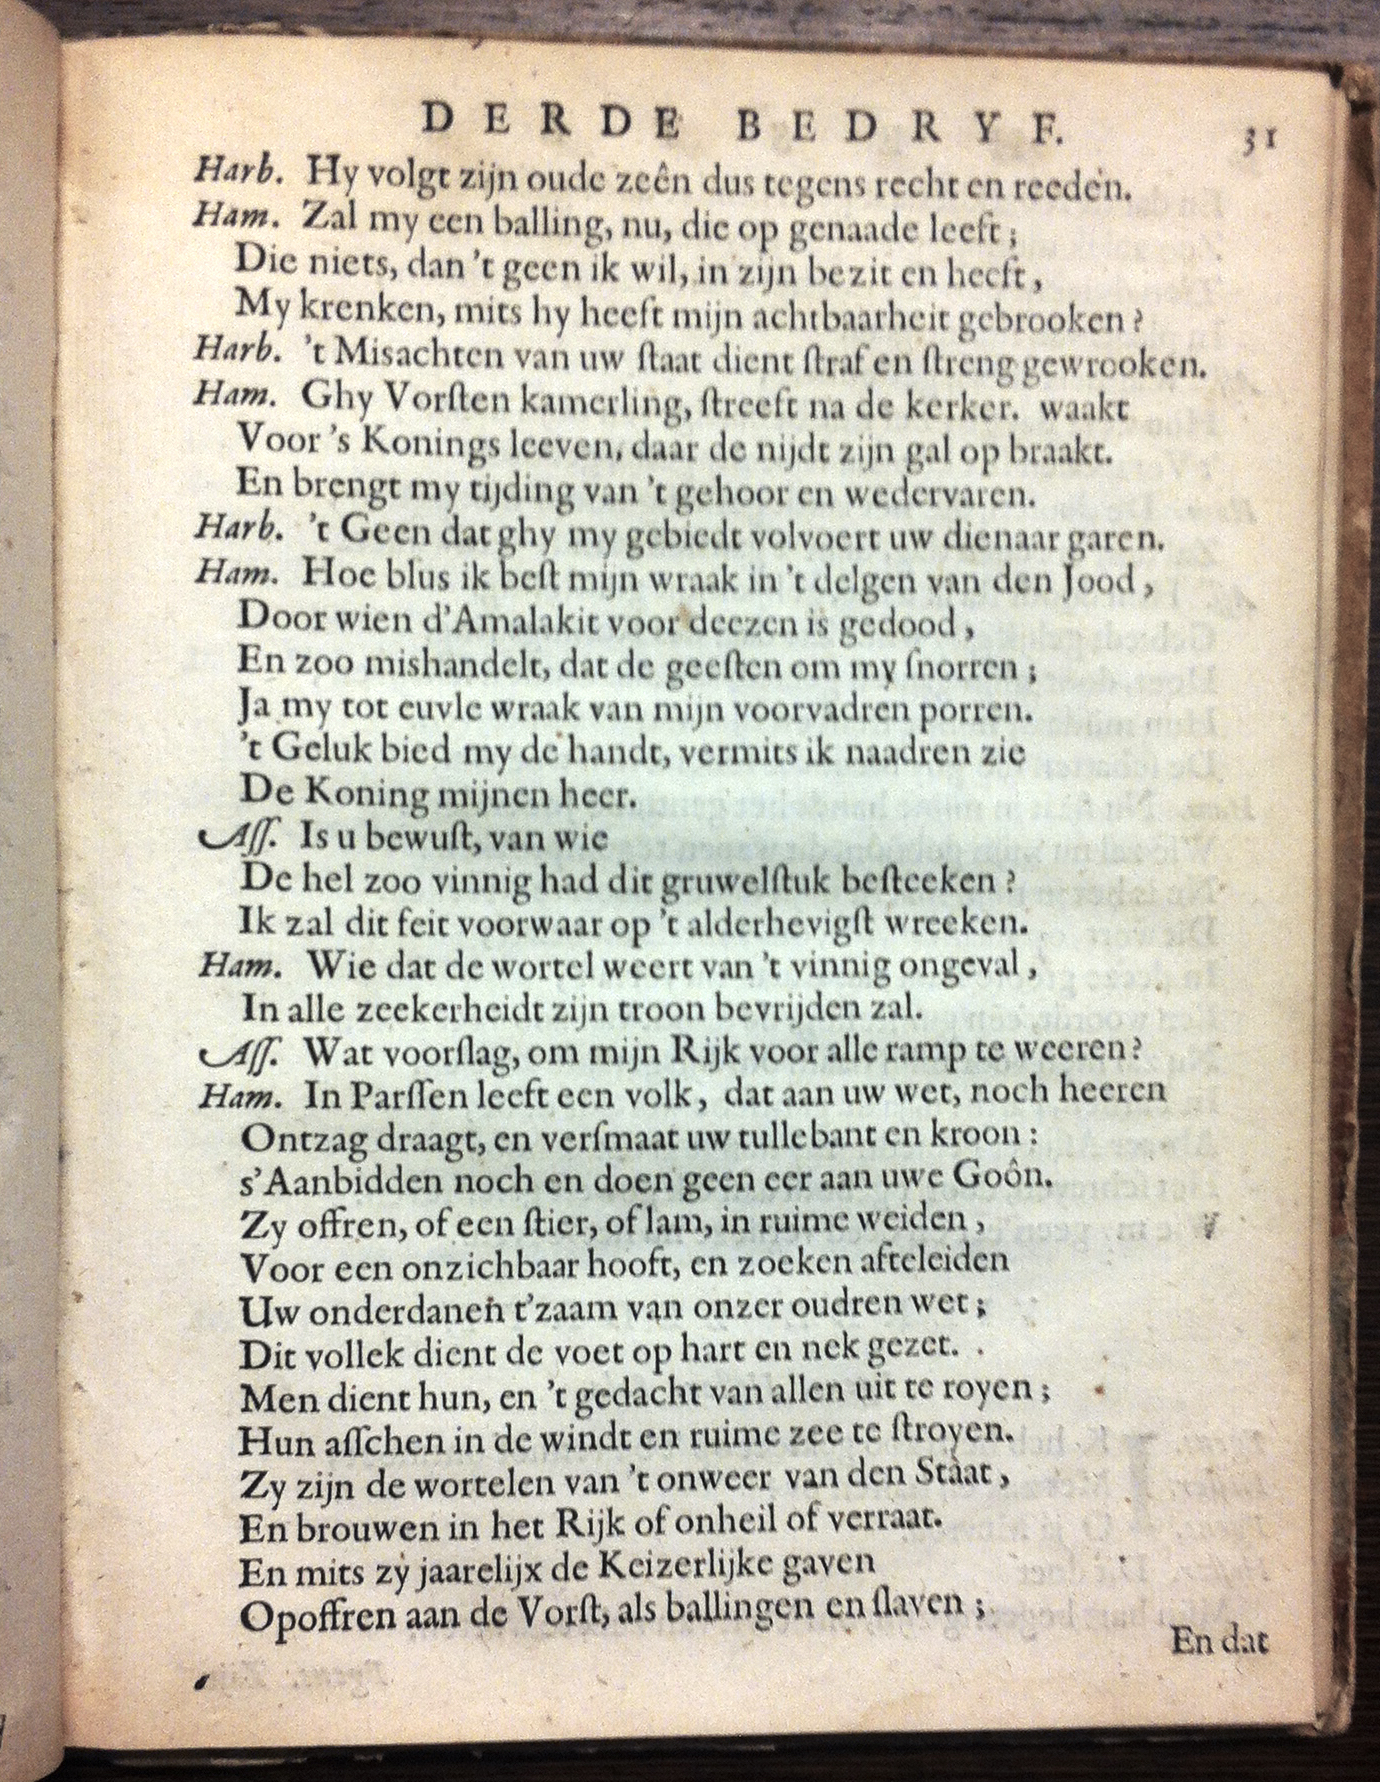 DERDE BEDRYF. 31
Harb. Hy volgt zijn oude zeên dus tegens recht en reeden.
Ham. Zal my een balling, nu, die op genaade leeft;
Die niets, dan 't geen ik wil, in zijn bezit en heeft,
My krenken, mits hy heeft mijn achtbaarheit gebrooken?
Harb. 't Misachten van uw ſtaat dient ſtraf en ſtreng gewrooken.
Ham. Ghy Vorſten kamerling, ſtreeft na de kerker. waakt
Voor 's Konings leeven, daar de nijdt zijn gal op braakt.
En brengt my tijding van 't gehoor en wedervaren.
Harb. 't Geen dat ghy my gebiedt volvoert uw dienaar garen.
Ham. Hoe blus ik beſt mijn wraak in 't delgen van den Jood,
Door wien d'Amalakit voor deezen is gedood,
En zoo mishandelt, dat de geeſten om my ſnorren;
Ja my tot euvle wraak van mijn voorvadren porren.
't Geluk bied my de handt, vermits ik naadren zie
De Koning mijnen heer.
Aſſ. Is u bewuſt, van wie
De hel zoo vinnig had dit gruwelſtuk beſteeken?
Ik zal dit feit voorwaar op 't alderhevigſt wreeken.
Ham. Wie dat de wortel weert van 't vinnig ongeval,
In alle zeekerheidt zijn troon bevrijden zal.
Aſſ. Wat voorſlag, om mijn Rijk voor alle ramp te weeren?
Ham. In Parſſen leeft een volk, dat aan uw wet, noch heeren
Ontzag draagt, en verſmaat uw tullebant en kroon:
s'Aanbidden noch en doen geen eer aan uwe Goôn.
Zy offren, of een ſtier, of lam, in ruime weiden,
Voor een onzichbaar hooft, en zoeken afteleiden
Uw onderdanen t'zaam van onzer oudren wet;
Dit vollek dient de voet op hart en nek gezet.
Men dient hun, en 't gedacht van allen uit te royen;
Hun aſſchen in de windt en ruime zee te ſtroyen.
Zy zijn de wortelen van 't onweer van den Staat,
En brouwen in het Rijk of onheil of verraat.
En mits zy jaarelijx de Keizerlijke gaven
Opoffren aan de Vorſt, als ballingen en ſlaven;
En dat